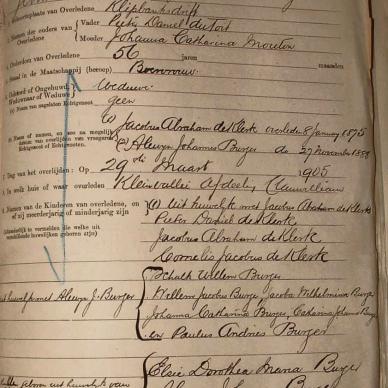 Klipbanksdrift
Namen der ouders van Overledene
Vader Pieter Daniel du Toit
Moeder Johanna Catharina Mouton
Ouderdom van Overledene 56 jaren maanden
Stand in de Maatschappij (beroep) Boerevrouw
Gehuwd of Ongehuwd, Weduwnaar of Weduwe Weduwe
(a) Naam van nagelaten Echtgenoot geen
(1) Jacobus Abraham de Klerk overleden 8 January 1875
(2) Alewyn Johannes Burger do 27 November 1889
Dag van het overlijden: Op 29ste Maart 1905
In welk huis of waar overleden Kleinvallei Afdeeling
Namen van de Kinderen van overledene, en of zij meerderjarig of minderjarig zijn
(1) Uit huwelijk met Jacobus Abraham de Klerk
Pieter Daniel de Klerk
Jacobus Abraham de Klerk
Cornelis Jacobus de Klerk
Schalk Willem Burger
huwelijk met Alewyn J. Burger
Willem Jacobus Burger, Jacoba Wilhelmina Burger
Johanna Catharina Burger, Catharina Johanna Burger
en Paulus Andries Burger
Elsie Dorothea Maria Burger